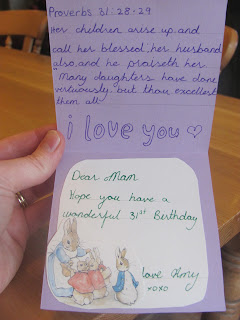 Proverbs 31:28-29
Her children arise up, and
call her blessed, her husband
also, and he praiseth her.
Many daughters have done
virtuously, but thou excellest
them all.
i love you ♡
Dear Mam
Hope you have a
wonderful 31st Birthday
love
xoxo